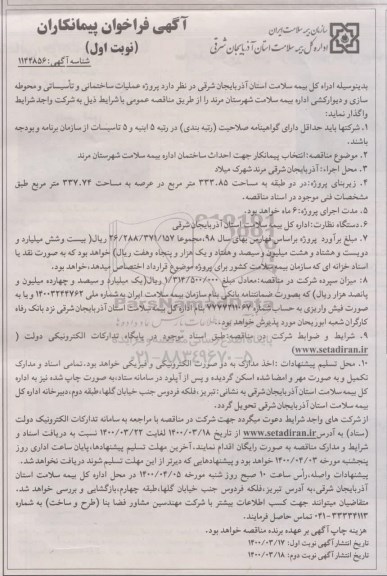 سازمان بیمه سلامت ایران
اداره کل بیمه سلامت استان آذربایجان شرقی
آگهی فراخوان پیمانکاران
(نوبت اول)
شناسه آگهی: ۱۱۴۲۸۵۶
بدینوسیله اداره کل بیمه سلامت استان آذربایجان شرقی در نظر دارد پروژه عملیات ساختمانی و تأسیساتی و محوطه
سازی و دیوارکشی اداره بیمه سلامت شهرستان مرند را از طریق مناقصه عمومی با شرایط ذیل به شرکت واجد شرایط
واگذار نماید:
۱. شرکتها باید حداقل دارای گواهینامه صلاحیت (رتبه بندی) در رتبه ۵ ابنیه و ۵ تاسیسات از سازمان برنامه و بودجه
باشند.
۲. موضوع مناقصه: انتخاب پیمانکار جهت احداث ساختمان اداره بیمه سلامت شهرستان مرند
۳. محل اجراء: آذربایجان شرقی مرند شهرک میلاد
۴. زیربنای پروژه: در دو طبقه به مساحت ۳۳۳.۸۵ متر مربع در عرصه به مساحت ۳۳۷.۷۴ متر مربع طبق
مشخصات فنی موجود در اسناد مناقصه.
۵. مدت اجرای پروژه: ۶ ماه خواهد بود.
۶. دستگاه نظارت: اداره کل بیمه سلامت استان آذربایجان شرقی
۷. مبلغ برآورد پروژه براساس فهارس بهای سال ۹۸، مجموعا ۲۶/۲۸۸/۳۷۱/۱۵۷ ریال( بیست وشش میلیارد و
دویست و هشتاد و هشت میلیون و سیصد و هفتاد و یک هزار و پنجاه وهفت ریال) خواهد بود که به صورت نقد یا
اسناد خزانه ای که سازمان بیمه سلامت کشور برای پروژه موضوع قرارداد اختصاص میدهد، خواهد بود.
۸: میزان سپرده شرکت در مناقصه: معادل مبلغ ۱/۳۱۴/۵۰۰/۰۰۰ ریال(یک میلیارد و سیصد و چهارده میلیون و
پانصد هزار ریال) که بصورت ضمانتنامه بانکی بنام سازمان بیمه سلامت ایران به شماره ملی ۱۴۰۰۳۴۴۴۷۶۴ و یا به
صورت فیش واریزی به حساب شماره بنام اداره کل بیمه سلامت استان آذربایجان شرقی نزد بانک رفاه
کارگران شعبه ابوریحان مورد پذیرش خواهد بود.
۹. شرایط و ضوابط شرکت در مناقصه: طبق اسناد موجود در پایگاه تدارکات الکترونیکی دولت (
www.setadiran.ir)
۱۰. محل تسلیم پیشنهادات : اخذ مدارک به دو صورت الکترونیکی و فیزیکی خواهد بود. تمامی اسناد و مدارک
تکمیل و به صورت مهر و امضا شده اسکن گردیده و پس از آپلود در سامانه ستاد، به صورت چاپ شده نیز به اداره
کل بیمه سلامت استان آذربایجان شرقی به نشانی: تبریز، فلکه فردوس جنب خیابان گلها، طبقه دوم، دبیرخانه اداره کل
بیمه سلامت استان آذربایجان شرقی تحویل گردد.
از شرکت های واجد شرایط دعوت میگردد جهت شرکت در مناقصه با مراجعه به سامانه تدارکات الکترونیک دولت
(ستاد) به آدرس www.setadiran.ir از تاریخ ۱۴۰۰/۰۳/۱۸ لغایت ۱۴۰۰/۰۳/۲۲ نسبت به دریافت اسناد و
شرایط و مدارک مناقصه به صورت رایگان اقدام نمایند. آخرین مهلت تسلیم پیشنهادها، پایان ساعت اداری روز
پنجشنبه مورخه ۱۴۰۰/۰۴/۰۳ خواهد بود و پیشنهادهایی که دیرتر از این مهلت تسلیم شوند دریافت نخواهد شد.
پیشنهادات واصله، رأس ساعت ۱۰ صبح روز شنبه مورخه ۱۴۰۰/۰۴/۰۵ در محل اداره کل بیمه سلامت استان
آذربایجان شرقی، به آدرس تبریز، فلکه فردوس جنب خیابان گلها، طبقه چهارم، بازگشایی و بررسی خواهد شد.
متقاضیان میتوانند جهت کسب اطلاعات بیشتر با شرکت مهندسین مشاور فضا بنا (طرح و ساخت) به شماره
۰۴۱-۳۳۳۳۴۱۱۳ تماس حاصل فرمایند.
هزینه چاپ آگهی بر عهده برنده مناقصه خواهد بود.
تاریخ انتشار آگهی نوبت اول: ۱۴۰۰/۰۳/۱۷
تاریخ انتشار آگهی نوبت دوم: ۱۴۰۰/۰۳/۱۸
۰۲۱-۸۸۳۴۹۶۷۰-۵